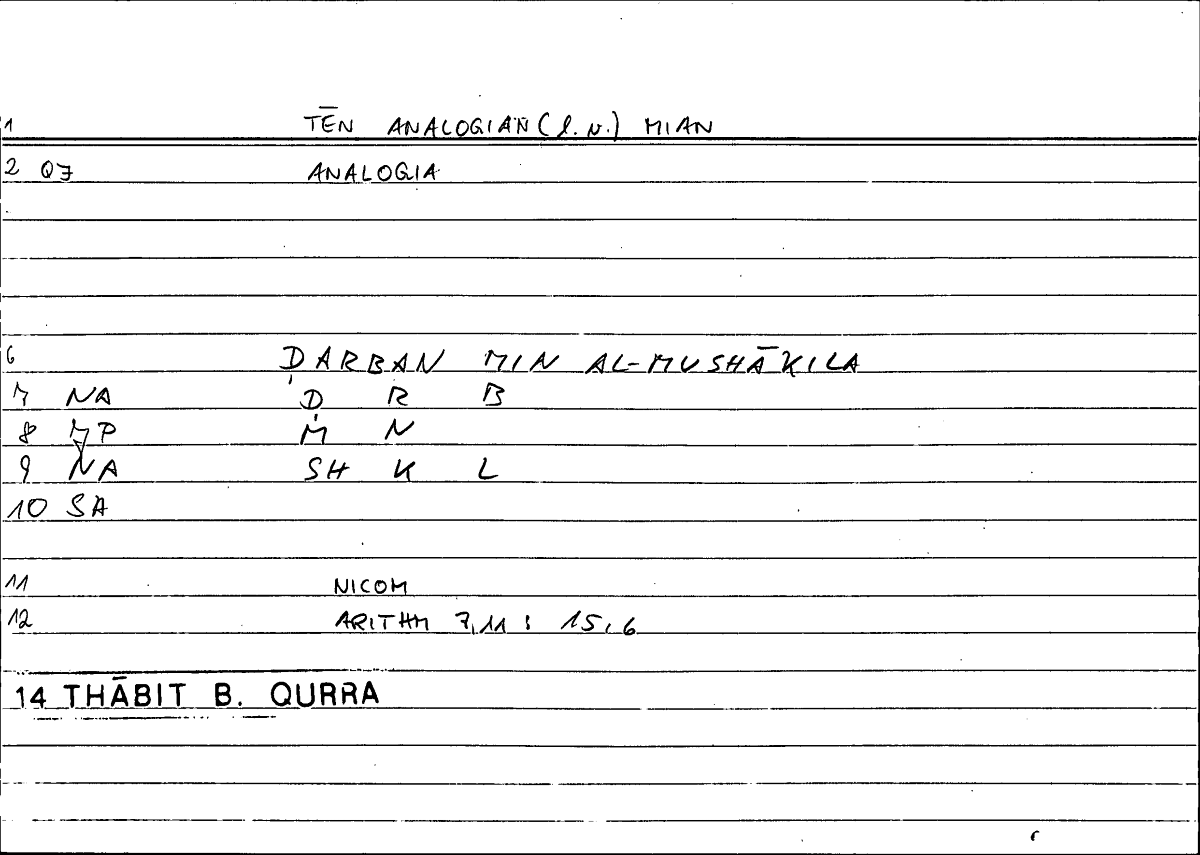 1 TĒN ANALOGIAN (l. n.) MIAN
2 QJ ANALOGIA
6 ḌARBAN MIN AL-MUSHĀKILA
7 NA Ḍ R B
8 MP M N
9 NA SH K L
10 SA
11 NICOM
12 ARITHM 7,11 : 15,6
14 THĀBIT B. QURRA